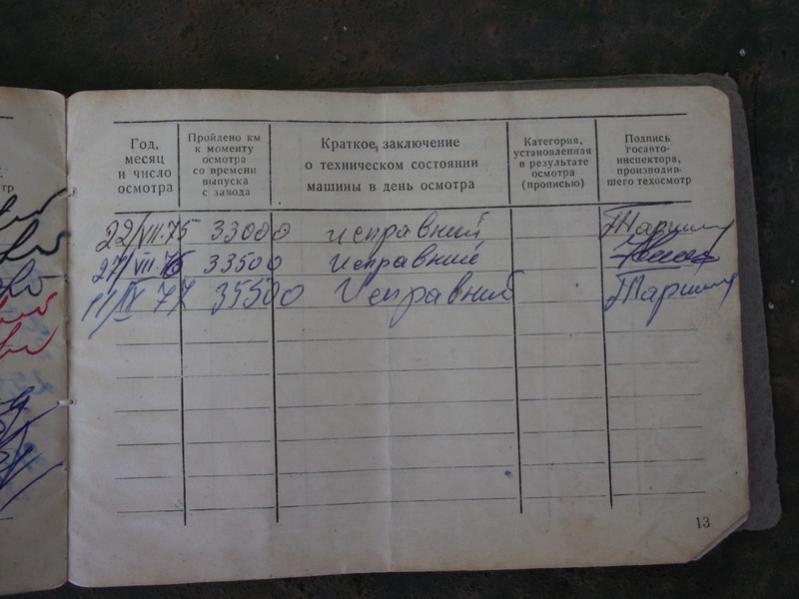 Год,
месяц
и число
осмотра
Пройдено км
к моменту
осмотра
со времени
выпуска
с завода
Краткое заключение
о техническом состоянии
машины в день осмотра
Категория,
установленная
в результате
осмотра
(прописью)
Подпись
госавто-
инспектора,
производив-
шего техосмотр
22/VII-75 33000 исправний
27/VII-76 33500 исправний
11/IX 77 35500 Исправний
13